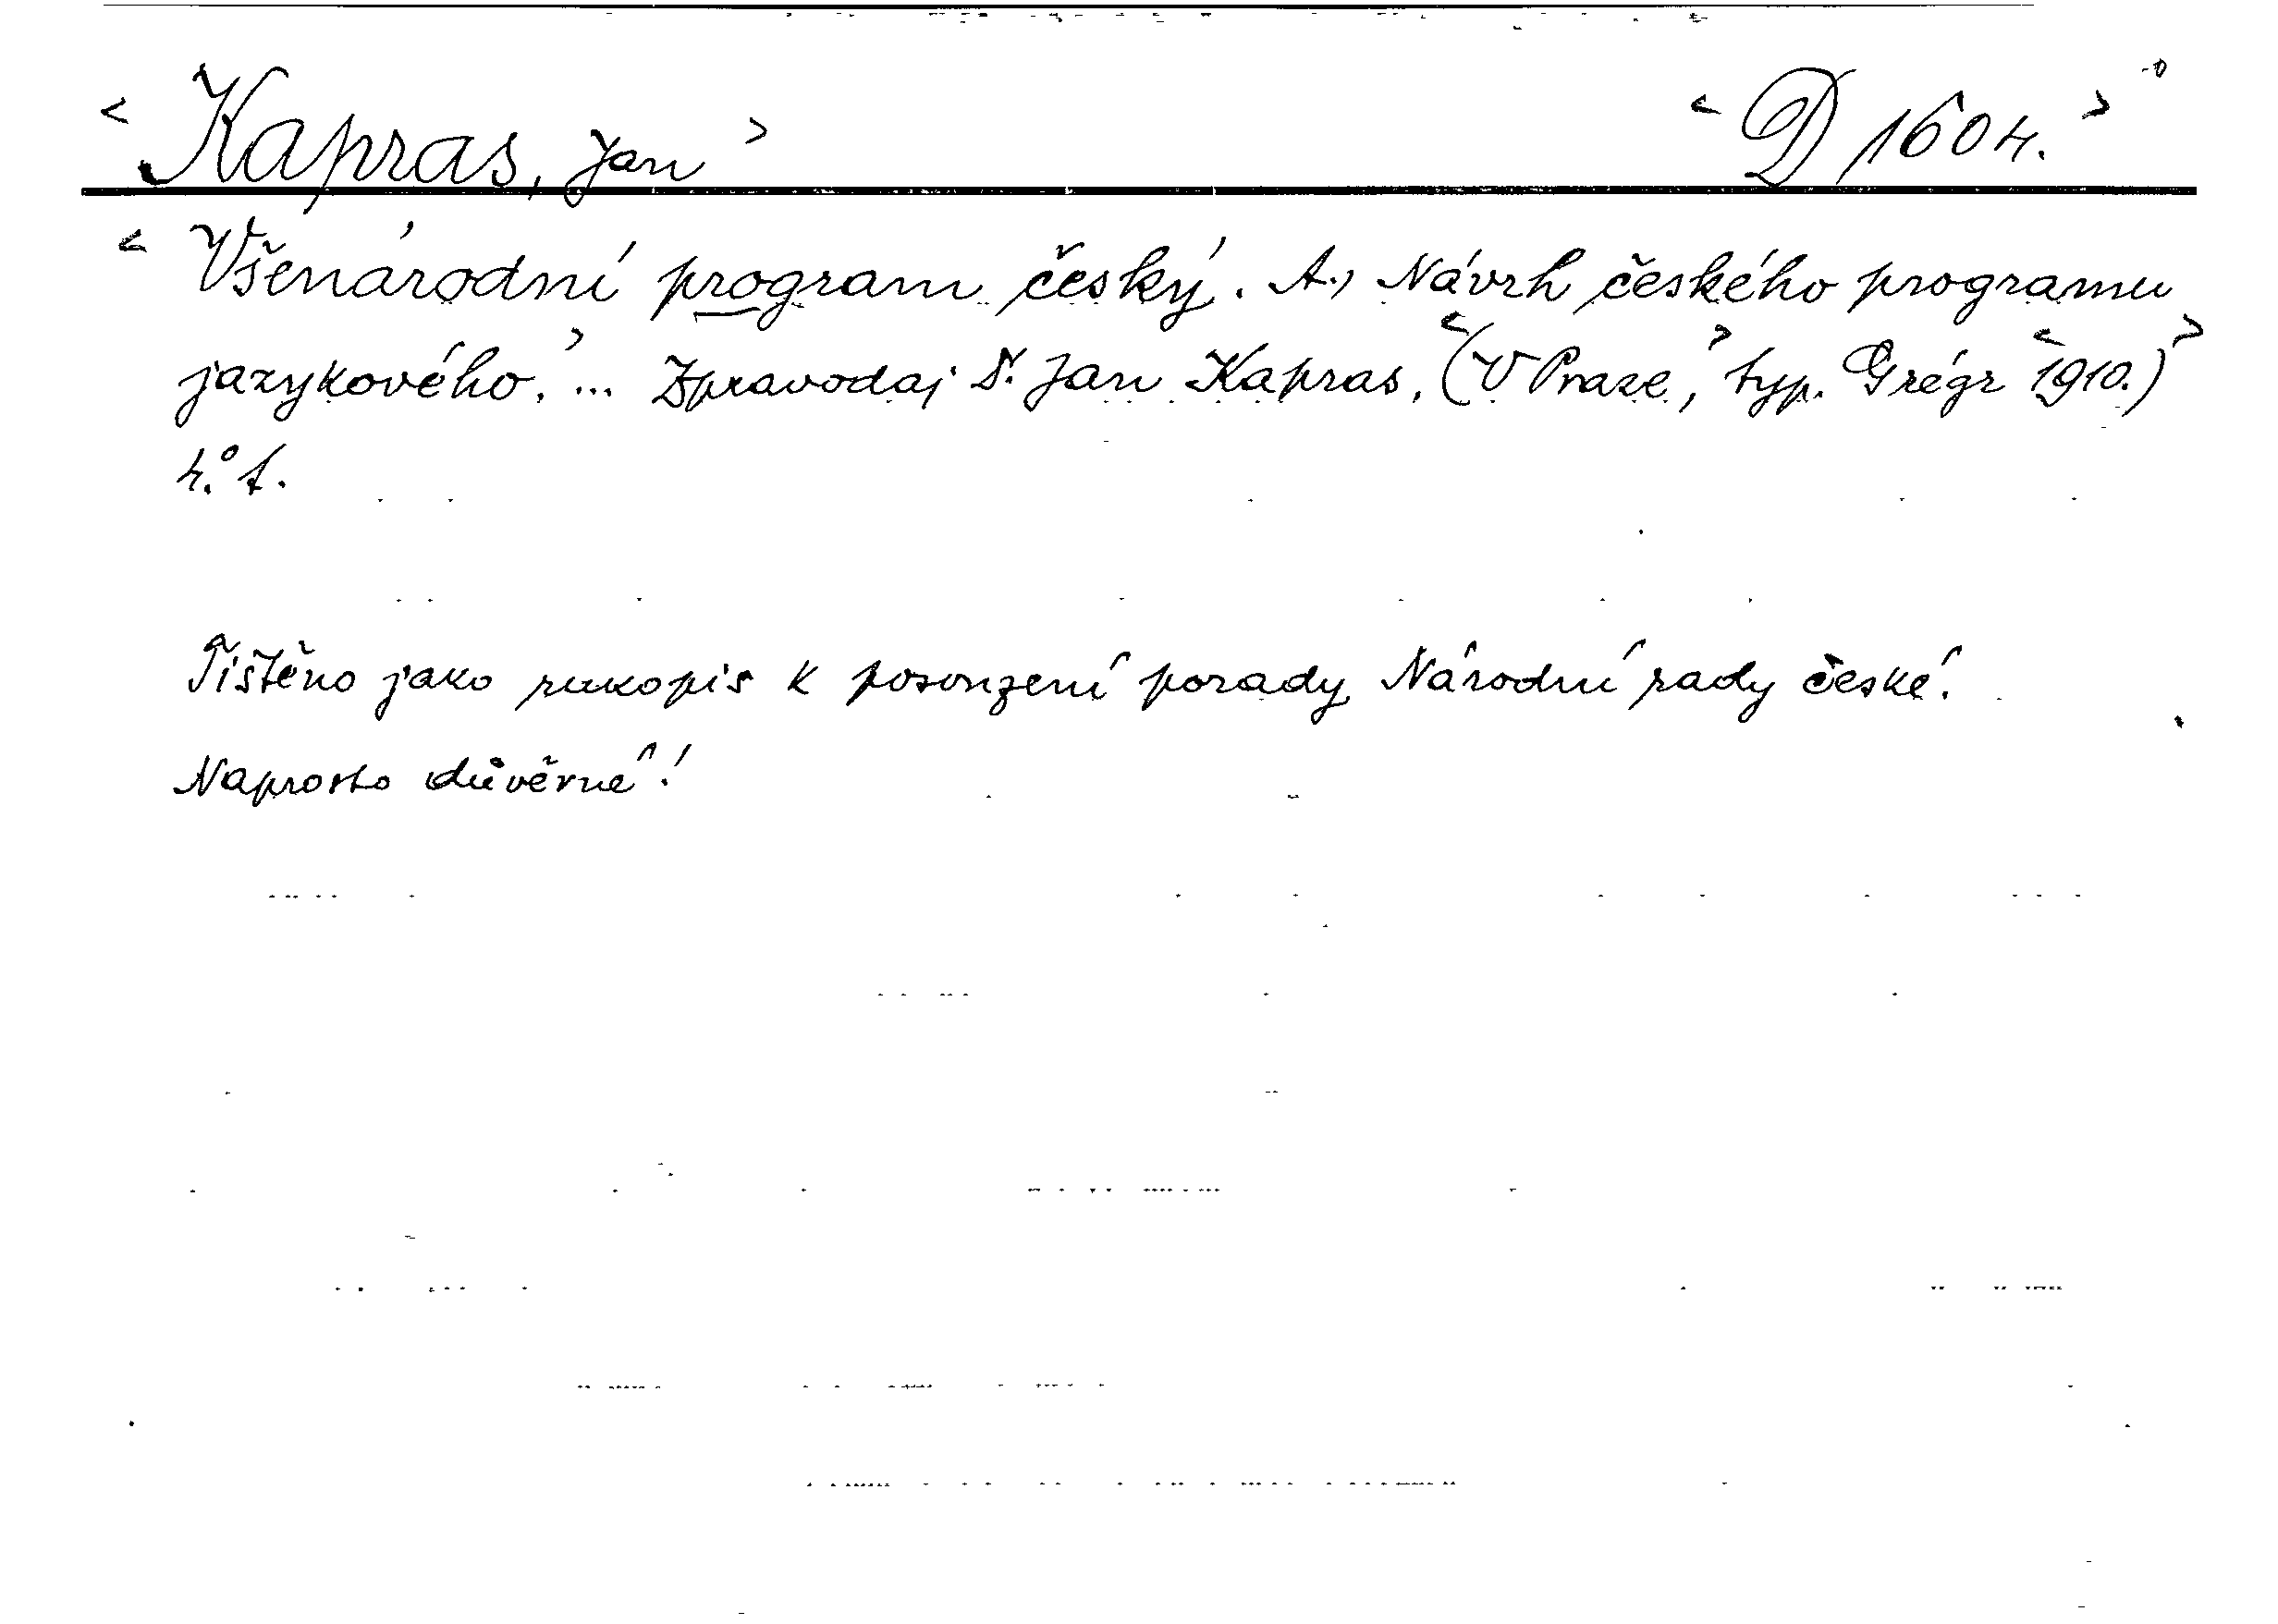 < Kapras, Jan > < D 1604. >
< Všenárodní program český. A.) Návrh českého programu
jazykového. > ... Zpravodaj Dr. Jan Kapras. < (V Praze, > typ. Grégr < 1910.) >
4.° 1.
Tištěno jako rukopis k posouzení porady Národní rady české!
Naprosto důvěrné!